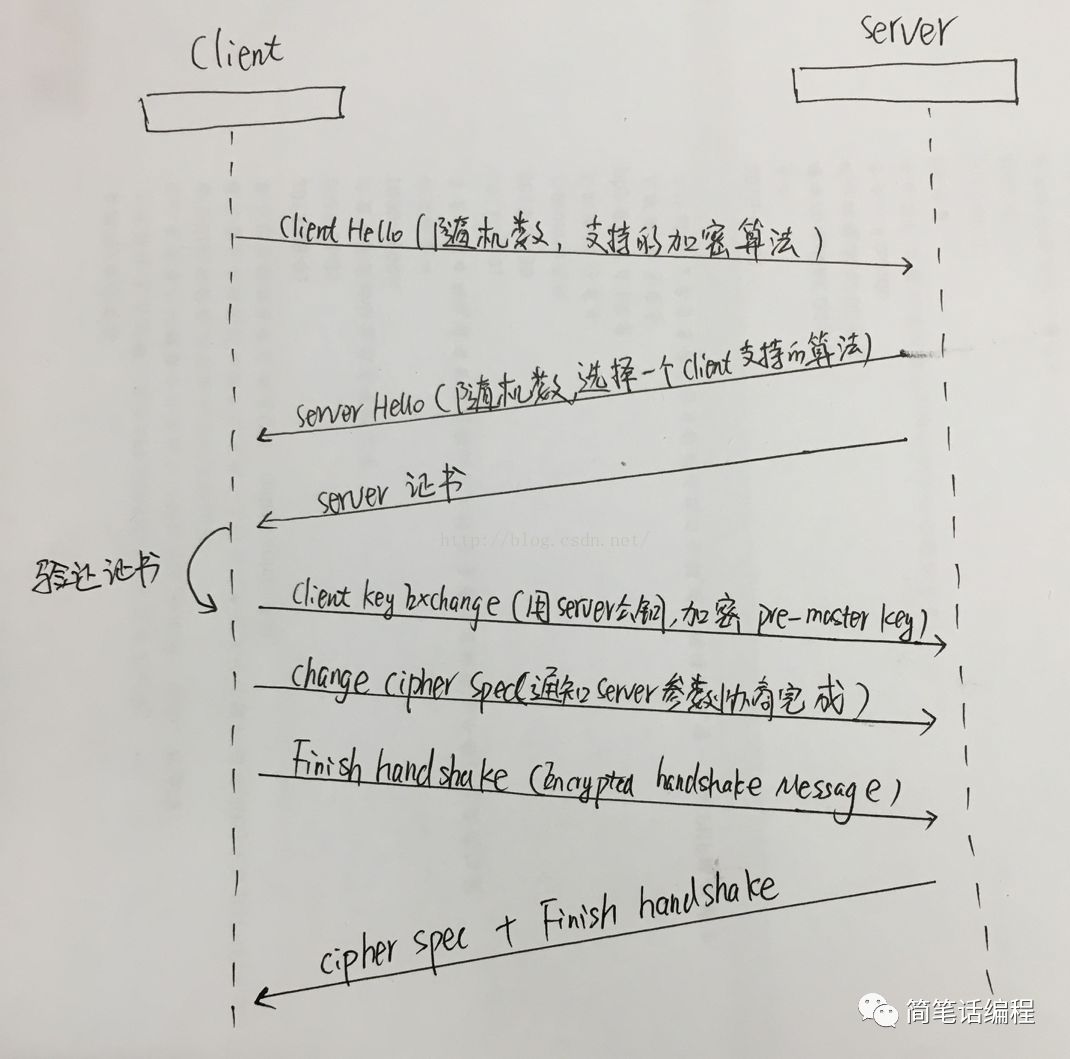 Client
server
Client Hello (随机数, 支持的加密算法)
server Hello (随机数,选择一个client支持的算法)
server 证书
http://blog.csdn.net/
验证证书
Client key Exchange (用server公钥,加密 pre-master key)
change cipher spec(通知server参数协商完成)
Finish handshake (Encrypted handshake Message)
cipher spec + Finish handshake
简笔话编程